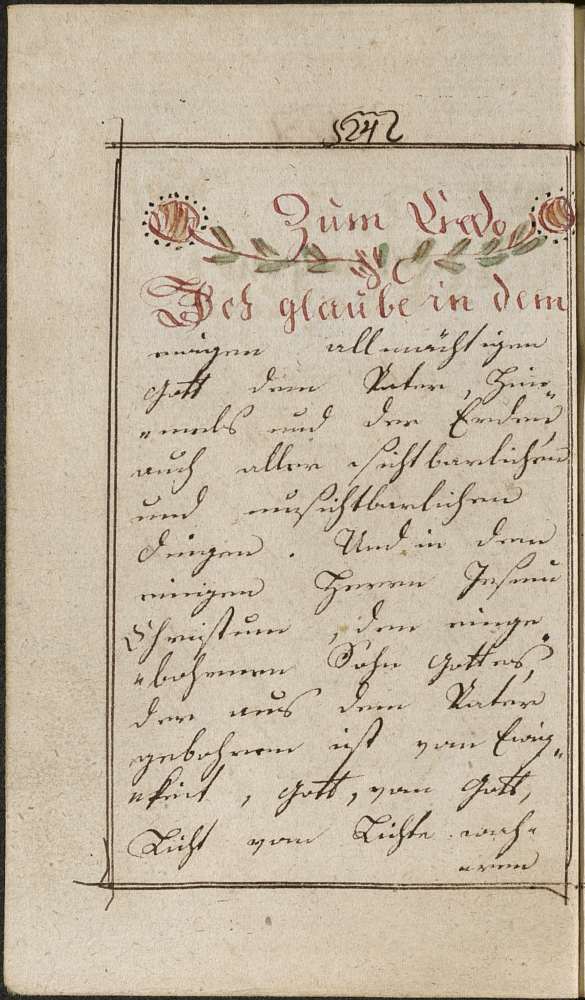 524
Zum Credo
Ich glaube in dem
einigen allmächtigen
Gott dem Vater, Him¬
"mels und der Erden,
auch aller sichtbarlichen
und unsichtbarlichen
Dingen. Und in dem
einigen Herrn Jesum
Christum, dem einge"
"bohrnen Sohn Gottes,
der aus dem Vater
gebohren ist von Ewig"
"keit, Gott, von Gott,
Licht vom Lichte. wah¬
"ren